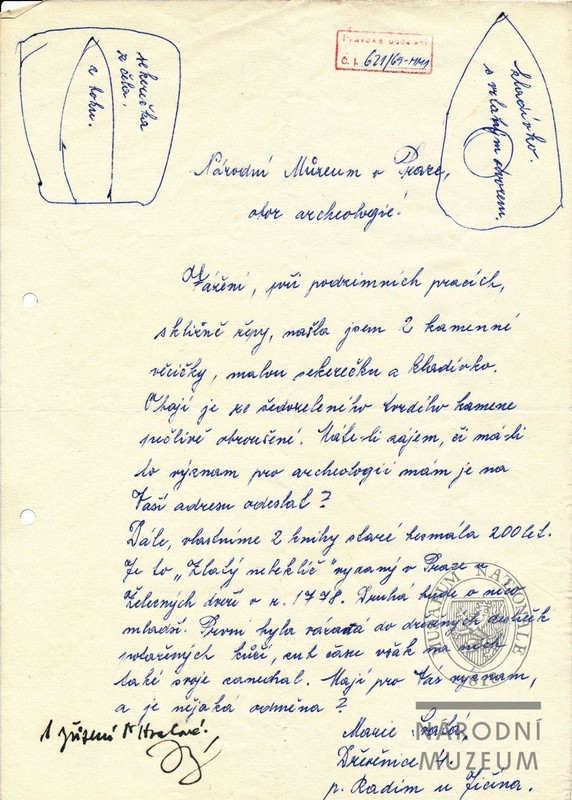 sekerečka
z čela.
z boku.
Č. j. 621/69-
kladívko.
s vrtaným otvorem.
Národní Můzeum v Praze,
obor archeologie!
Vážení, při podzimních pracích,
sklizně řepy, našla jsem 2 kamenné
věcičky, malou sekerečku a kladívko.
Obojí je ze šedozeleného tvrdého kamene
pečlivě obroušené. Máte-li zájem, či má-li
to význam pro archeologii mám je na
Vaší adresu odeslat?
Dále, vlastníme 2 knihy staré bezmála 200 let.
Je to „Zlatý nebeklíč" vydaný v Praze u
železných dveří v r. 1778. Druhá bude o něco
mladší. První byla vázaná do dřevěných destiček
potažených kůží, zub času však na nich
také svoje zanechal. Mají pro Vás význam,
a je nějaká odměna?
Marie
Dřevěnice 4.
p. Radim u Jičína.
MUSEUM NATIONALE
1818
NÁRODNÍ
MUZEUM